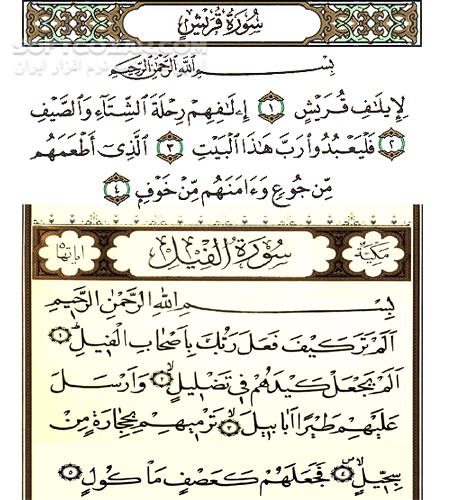 سُورَةُ قُرَيْشٍ
SOFTGOZAR.COM
نرم افزار ایران
بِسْمِ اللَّهِ الرَّحْمَٰنِ الرَّحِيمِ
لِإِيلَٰفِ قُرَيْشٍ ١ إِۦلَٰفِهِمْ رِحْلَةَ ٱلشِّتَآءِ وَٱلصَّيْفِ
٢ فَلْيَعْبُدُوا۟ رَبَّ هَٰذَا ٱلْبَيْتِ ٣ ٱلَّذِىٓ أَطْعَمَهُم
مِّن جُوعٍ وَءَامَنَهُم مِّنْ خَوْفٍۭ ٤
مكية سُورَةُ الْفِيلِ آياتها ٥
بِسْمِ اللهِ الرَّحْمٰنِ الرَّحِيمِ
اَلَمْ تَرَ كَيْفَ فَعَلَ رَبُّكَ بِاَصْحَابِ الْفِيلِ ١
اَلَمْ يَجْعَلْ كَيْدَهُمْ فِي تَضْلِيلٍ ٢ وَاَرْسَلَ
عَلَيْهِمْ طَيْرًا اَبَابِيلَ ٣ تَرْمِيهِمْ بِحِجَارَةٍ مِنْ
سِجِّيلٍ ٤ فَجَعَلَهُمْ كَعَصْفٍ مَأْكُولٍ ٥